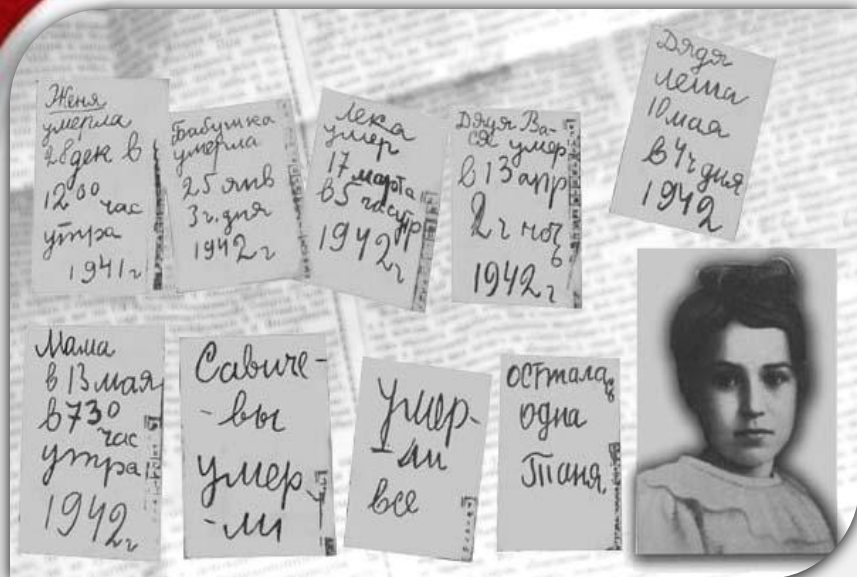 Женя
умерла
28 дек в
12 00 час
утра
1941 г
Бабушка
умерла
25 янв
3 ч. дня
1942 г
Лека
умер
17 марта
в 5 час утр
1942 г
Дядя Ва-
ся умер
в 13 апр
2 ч ноч
1942 г
Дядя
Леша
10 мая
в 4 ч дня
1942
Мама
в 13 мая
в 7 30
час
утра
1942 г
Савиче-
-вы
умер
-ли
Умер-
-ли
все
Осталась
одна
Таня.